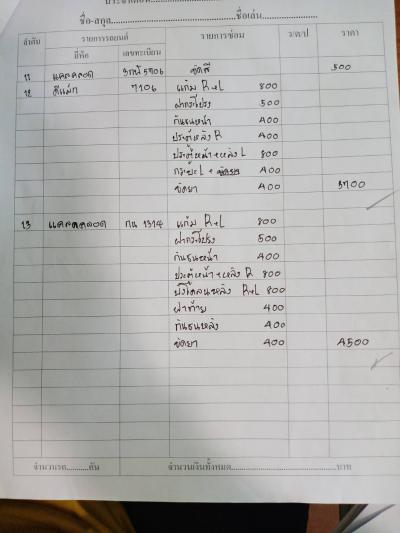 ชื่อ-สกุล..........ชื่อเล่น..........
ลำดับ รายการรถยนต์ รายการซ่อม ว/ด/ป ราคา
ยี่ห้อ เลขทะเบียน
11 5706 ขัดสี 500
12 ดีแม็ก 7106 แก้ม R+L 800
ฝากระโปรง 500
กันชนหน้า 400
ประตูหลัง R 400
ประตูหน้า+หลัง L 800
กระบะ L + 400
ขัดยา 400 3700
13 กน 1314 แก้ม R+L 800
ฝากระโปรง 500
กันชนหน้า 400
ประตูหน้า+หลัง R 800
บังโคลนหลัง R+L 800
ฝาท้าย 400
กันชนหลัง 400
ขัดยา 400 4500
จำนวนรถ..........คัน จำนวนเงินทั้งหมด..........บาท